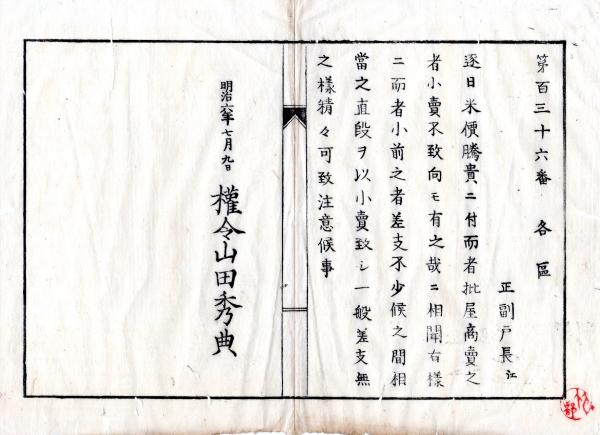 第百三十六番 各區
正副戸長江
逐日米價騰貴ニ付而者批屋商賣之
者小賣不致向モ有之哉ニ相聞右樣
ニ而者小前之者差支不少候之間相
當之直段ヲ以小賣致シ一般差支無
之樣精々可致注意候事
明治六年七月九日
權令山田秀典